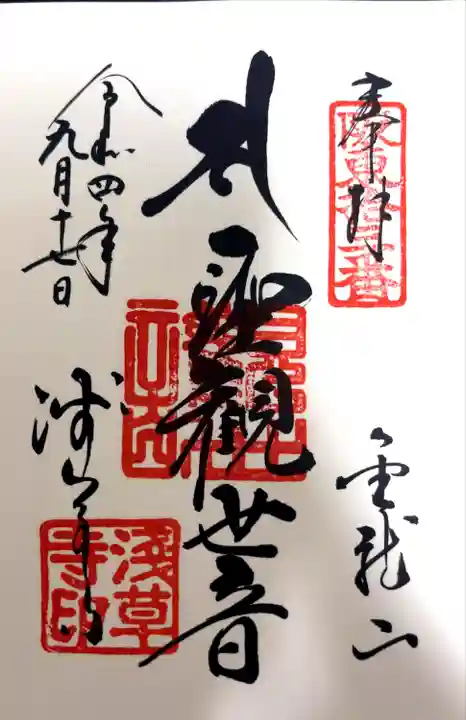 奉拝
坂東拾三番
金龍山
聖観世音
令和四年
九月十七日
浅草寺
浅草
寺印